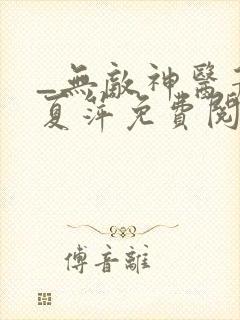 _無敵神醫
夏萍免費閱
傅音離